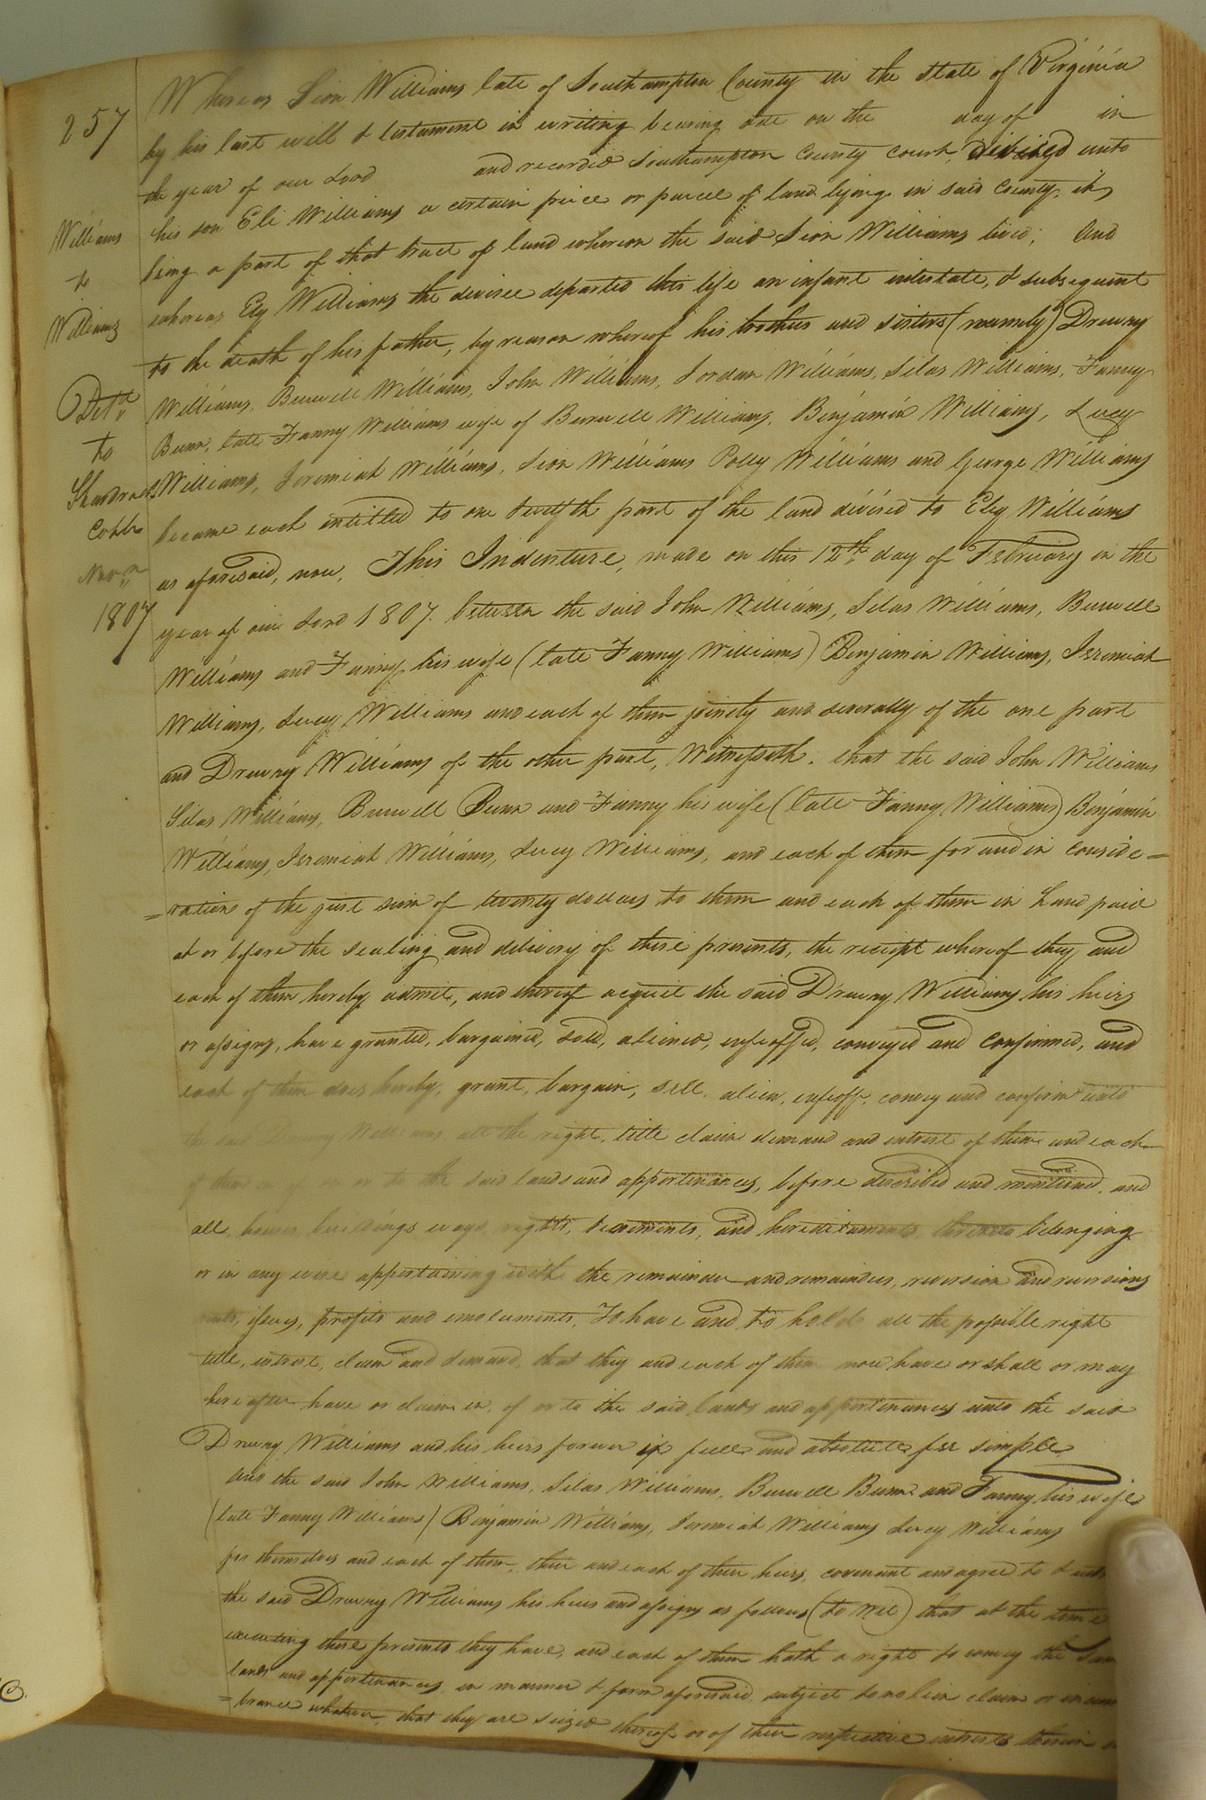 257
Williams
to
Williams
Deld
to
Shadrach
Cobb
Novr
1807
Whereas Sion Williams late of Southampton County in the State of Virginia
by his last will & testament in writing bearing date on the day of in
the year of our Lord and recorded Southampton County court, devised unto
his son Eli Williams a certain piece or parcel of land lying in said County, it
being a part of that tract of land whereon the said Sion Williams lived; And
whereas Ely Williams the devisee departed this life an infant intestate, & subsequent
to the death of his father, by reason whereof his brothers and sisters (namely) Drewry
Williams, Burwell Williams, John Williams, Jordan Williams, Silas Williams, Fanny
Bunn, late Fanny Williams wife of Burwell Williams, Benjamin Williams, Lucy
Williams, Jeremiah Williams, Sion Williams Polly Williams and George Williams
became each intitled to one twelfth part of the land devised to Ely Williams
as aforesaid, now, This Indenture, made on this 12th day of February in the
year of our Lord 1807. between the said John Williams, Silas Williams, Burwell
Williams and Fanny his wife (late Fanny Williams) Benjamin Williams, Jeremiah
Williams, Lucy Williams and each of them jointly and severally of the one part
and Drewry Williams of the other part, Witnesseth. that the said John Williams
Silas Williams, Burwell Bunn and Fanny his wife (late Fanny Williams) Benjamin
Williams, Jeremiah Williams, Lucy Williams, and each of them for and in conside=
=ration of the just sum of twenty dollars to them and each of them in hand paid
at or before the sealing and delivery of these presents, the receipt whereof they and
each of them hereby admit, and thereof acquit the said Drewry Williams his heirs
or assigns, have granted, bargained, sold, aliened, enfeoffed, conveyed and confirmed, and
each of them does hereby, grant, bargain, sell, alien, enfeoff, convey and confirm unto
the said Drewry Williams all the right, title claim demand and intrest of them and each
of them in of or to the said lands and appertinances, before described and mentioned, and
all houses buildings ways rights, tenements, and hereditaments thereto belonging
or in any wise appertaining with the remainder and remainders, reversion and reversions
rents, issues, profits and emoluments, To have and to hold all the possible right
title, intrest, claim and demand, that they and each of them now have or shall or may
hereafter have or claim in of or to the said lands and appertinances unto the said
Drewry Williams and his heirs forever in full and absolute fee simple
And the said John Williams, Silas Williams, Burwell Bunn and Fanny his wife
(late Fanny Williams) Benjamin Williams, Jeremiah Williams Lucy Williams
for themselves and each of them, their and each of their heirs, covenant and agree to &
the said Drewry Williams his heirs and assigns as follows (to wit) that at the time
executing these presents they have, and each of them hath a right to convey the
lands and appertinances in manner & form aforesaid, subject to no lien claim or incum
=brance whatever, that they are seized thereof or of their respective intrests therein